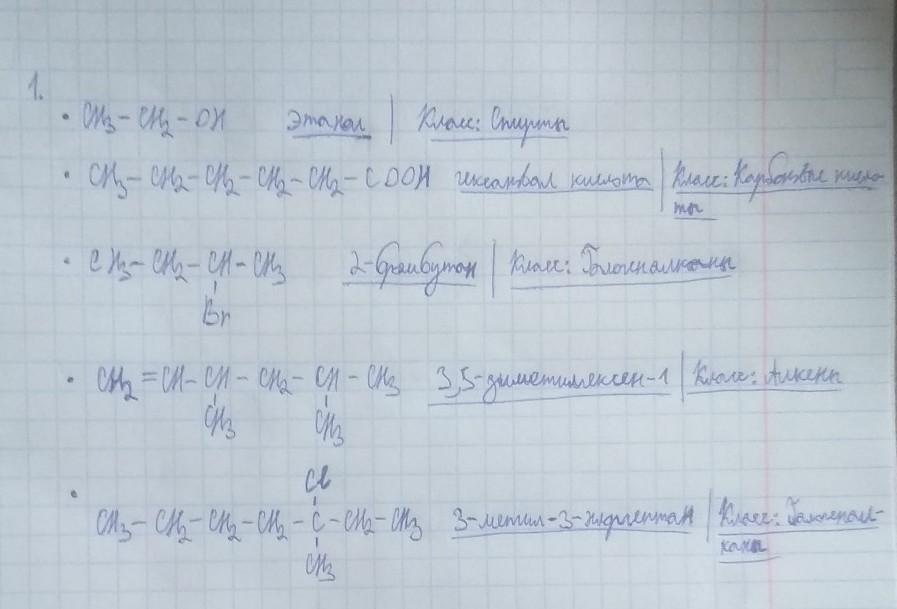 1.
• CH3 – CH2 – OH этанол | Класс: Спирты
• CH3 – CH2 – CH2 – CH2 – CH2 – COOH гексановая кислота | Класс: Карбоновые кисло-
ты
• CH3 – CH2 – CH – CH3 2-бромбутан | Класс: Галогеналканы
Br
• CH2 = CH – CH – CH2 – CH – CH3 3,5-диметилгексен-1 | Класс: Алкены
CH3 CH3
Cl
• CH3 – CH2 – CH2 – CH2 – C – CH2 – CH3 3-метил-3-хлоргептан | Класс: Галогенал-
CH3 каны